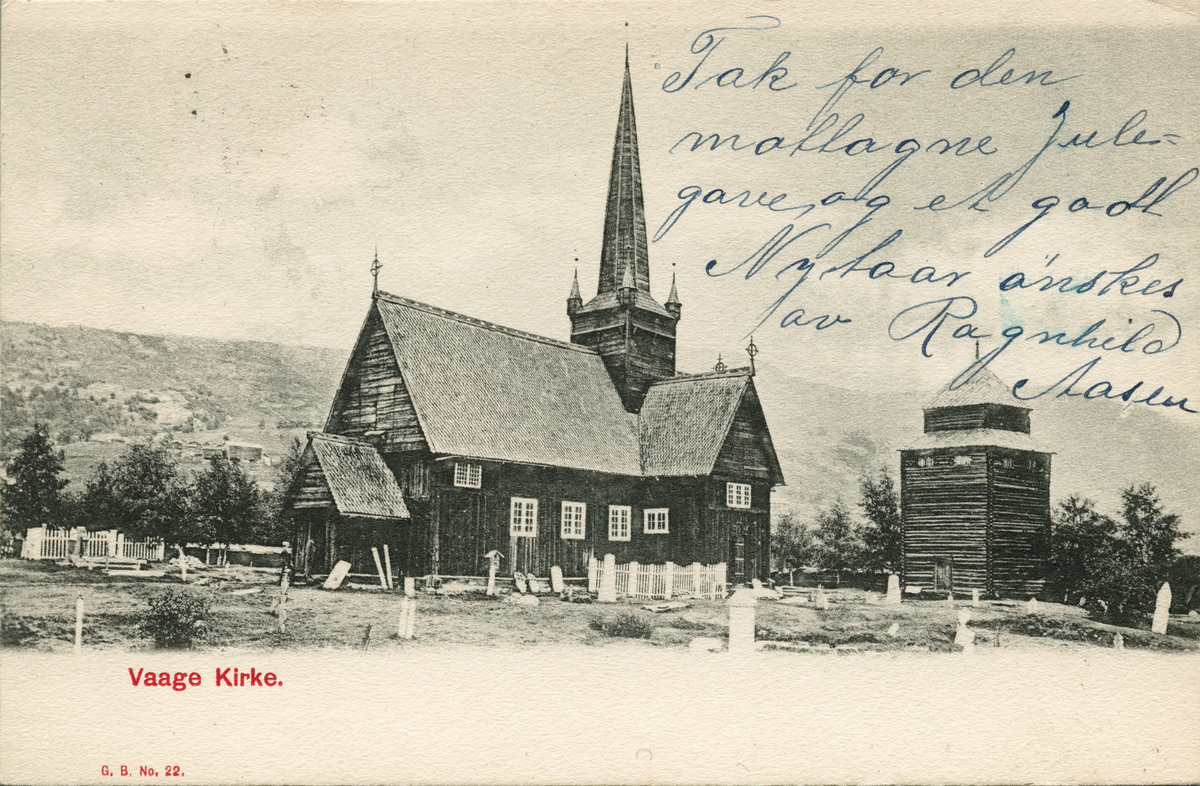 Tak for den
mottagne Jule=
gave, og et godt
Nytaar önskes
av Ragnhild
Aasen
Vaage Kirke.
G. B. No, 22.